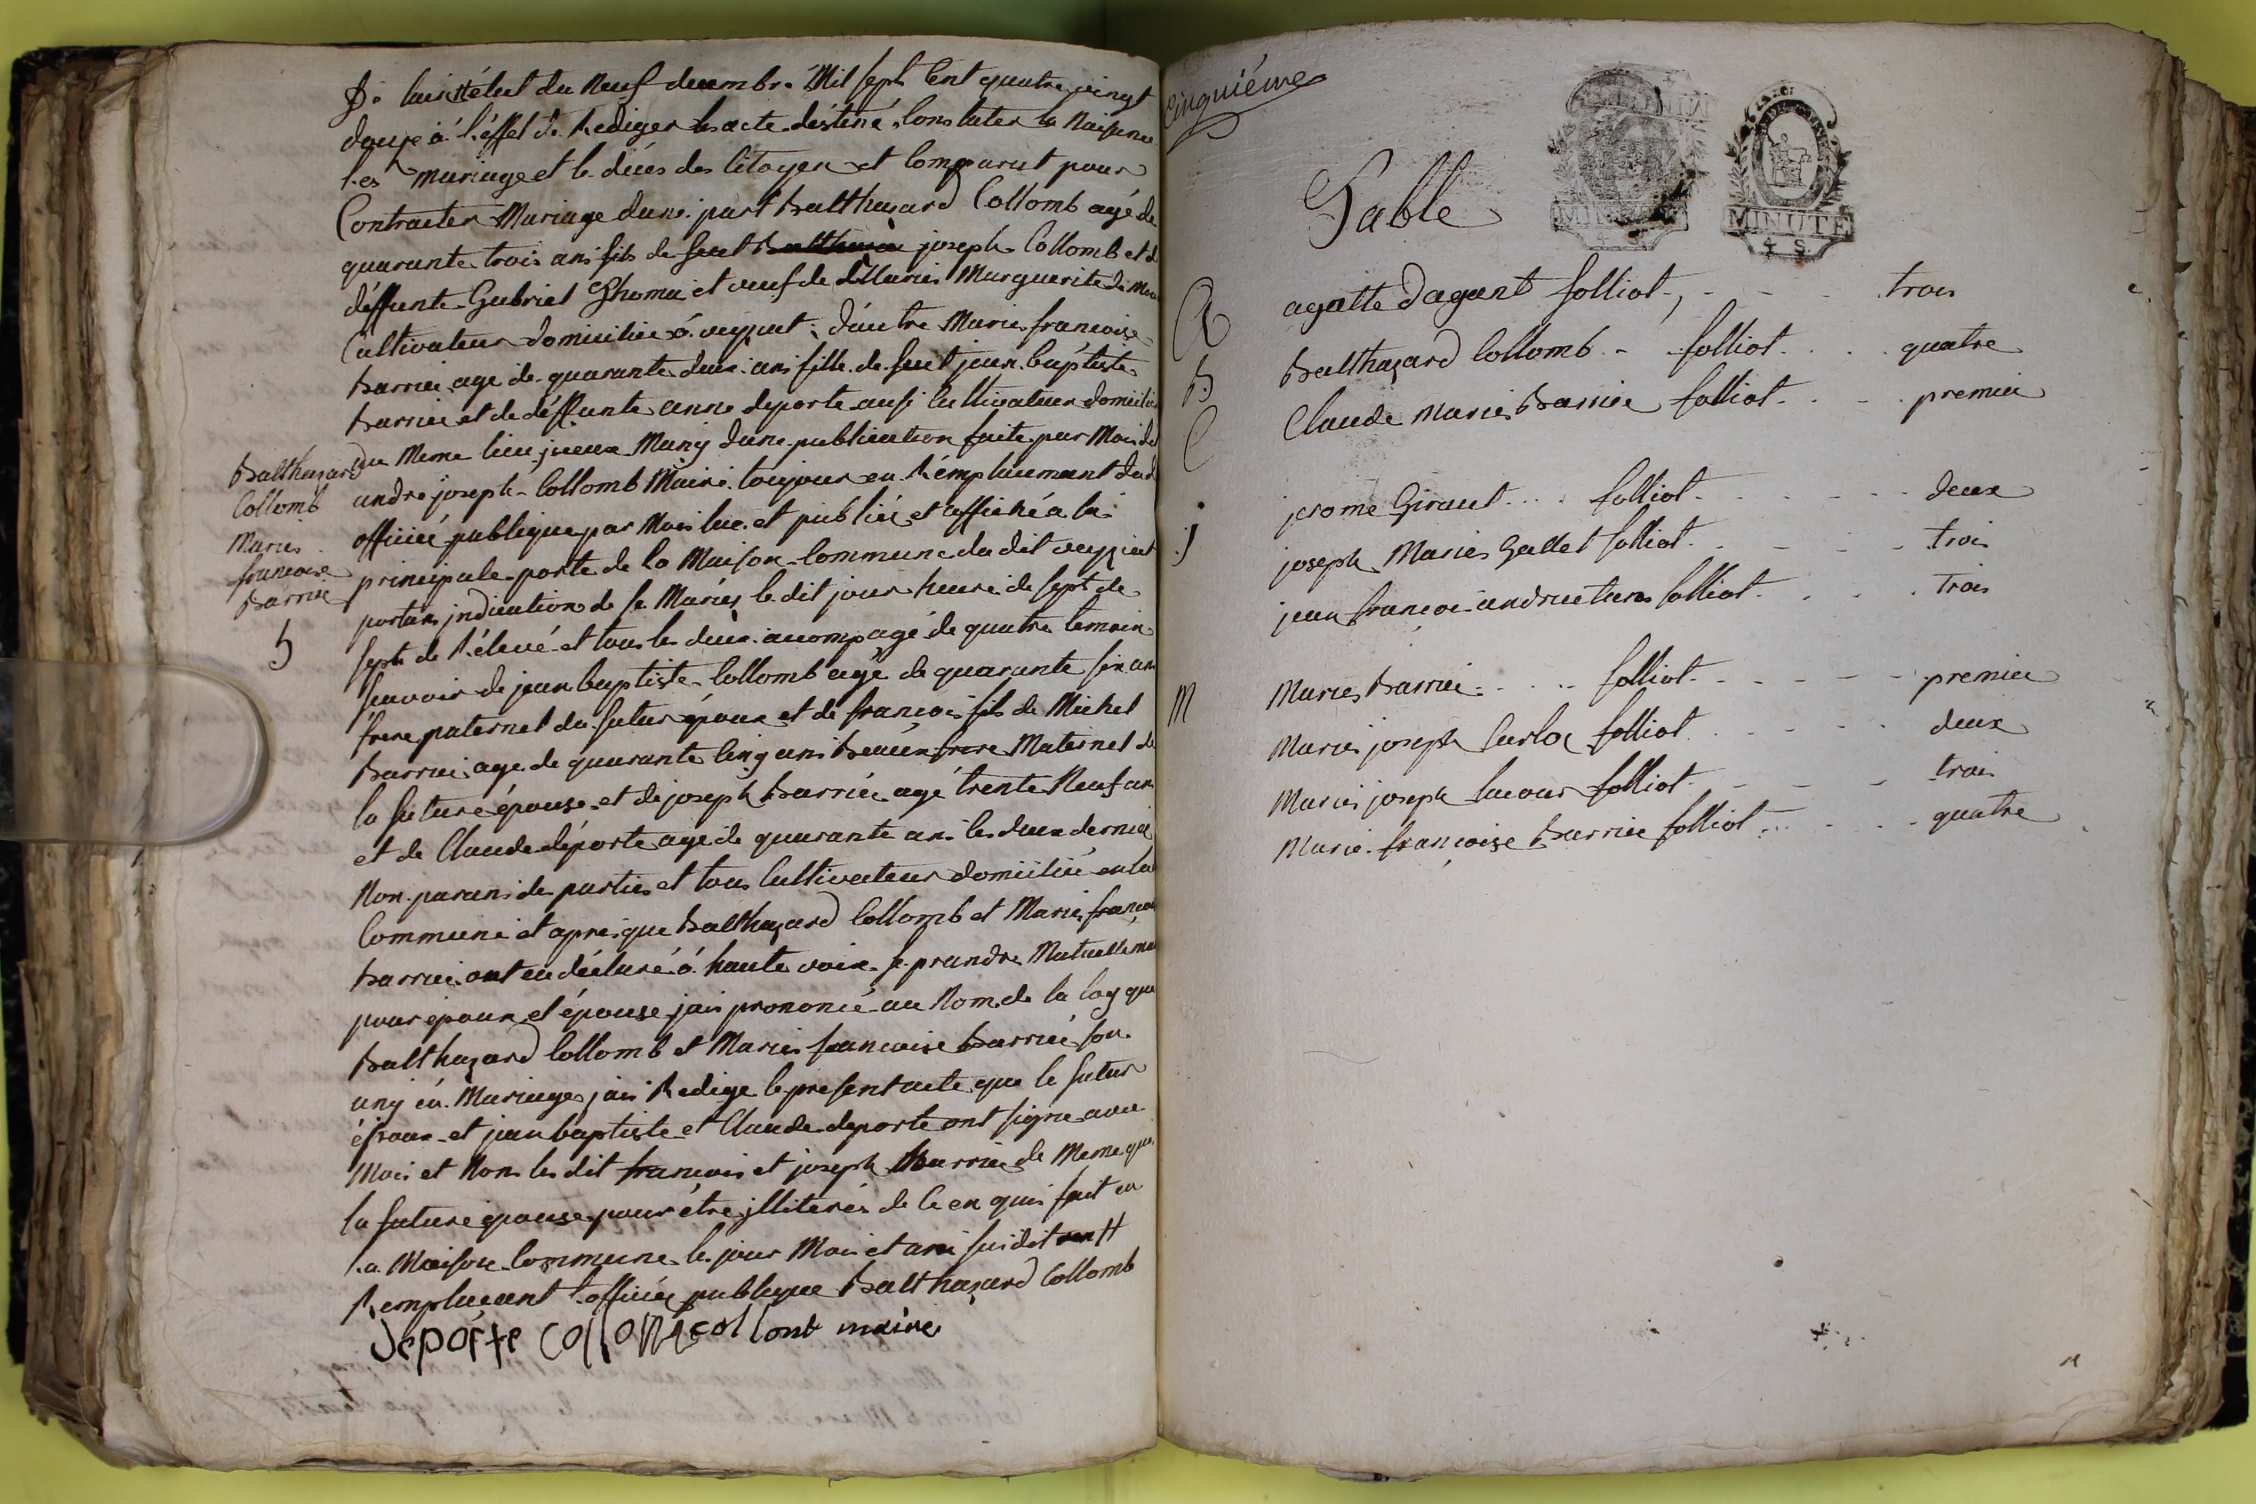 De laristélut du Neuf decembre Mil sept Cent quatre vingt
douze à l'éffet de Rediger les acte déstiné Constater la Naisence
les mariage et le décés des Citoyen et Comparut pour
Contracter Mariage dune part Balthazard Collomb agé de
quarante trois ans fils de feut joseph Collomb et de
déffunte Gabriel Thoma et veuf de Maries Marguerite de
Cultivateur domicilié à veypiat d'autre Maries francoise
Barriee age de quarante deux ans fille de feut jean baptiste
Barriee et de déffunte anne deporte ausi Cultivateur domicilié
du Meme lieu jceux Muny dune publication faite par Moi dit
andre joseph Collomb Maire toujour en Rémplacement dud
officié publique par Moi lue et publiée et affiché à la
principale porte de la Maison Commune du dit veypiat
portans jndication de se Mariés le dit jour heure de sept de
sept de Rélevé et tous les deux acompagé de quatre temoin
scavoir de jean baptiste Collomb agé de quarante six ans
frere paternel du futur époux et de francois fils de Michel
Barriee age de quarante cinq ans Beaux frere Maternel de
la future épouse et de joseph Barriée agé trente Neuf ans
et de Claude déporte age de quarante ans les deux dernié
Non parans de parties et tous Cultivateur domicilié en la
Commune et apres que Balthazard Collomb et Maries francoise
Barriee ont eu déclaré à haute voix se prandre Mutuellement
pour epoux et épouse jais prononcé au Nom de la loy que
Balthazard Collomb et Maries francoise Barriée son
uny en Mariage jais Redige le present acte que le futur
époux et jean baptiste et Claude deporte ont signe avec
Moi et Non les dit francois et joseph Barriee de Meme que
la future epouse pour étre jlliterés de ce en quis fait en
la Maison Commune le jour Mois et an susdit
Remplacant l'officié publique Balthazard Collomb
deporte Collomb Collont maire
Balthazard
Collomb
Maries
francoise
Barriee
5
Cinquiéme
Table
MINUTE
4 S.
MINUTE
4 S.
A agatte dagant folliot trois
B Balthazard Collomb folliot quatre
C Claude Maries Barriee folliot premier
jerome Giraut folliot deux
J joseph Maries Gallet folliot trois
jean françois folliot trois
M Maries Barriee folliot premier
Maries joseph folliot deux
Maries joseph folliot trois
Marie françoise Barriee folliot quatre